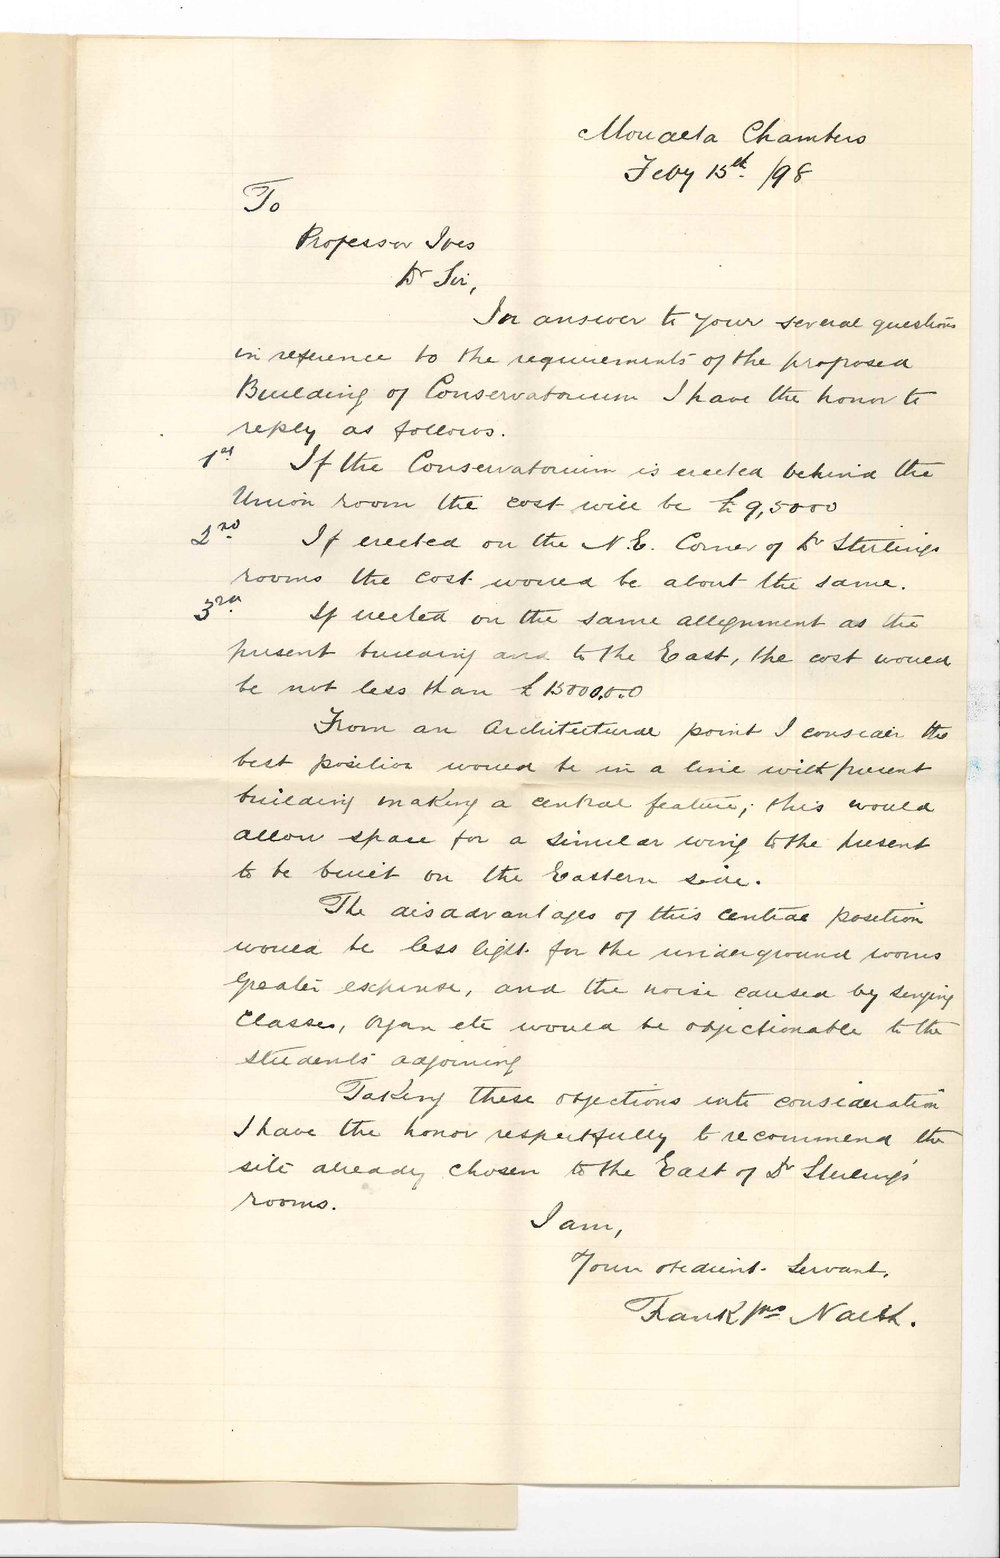 Monaeta Chambers
Feby 15th. /98
To
Professor Ives
Dr Sir,
In answer to your several questions
in reference to the requirements of the proposed
Building of Conservatorium I have the honor to
reply as follows.
1st If the Conservatorium is erected behind the
Union room the cost will be £9,5000
2nd. If erected on the N.E. Corner of Dr Stirlings
rooms the cost would be about the same.
3rd. If erected on the same allignment as the
present building and to the East, the cost would
be not less than £15000.0.0
From an Architectural point I consider the
best position would be in a line with present
building making a central feature; this would
allow space for a similar wing to the present
to be built on the Eastern side.
The disadvantages of this central position
would be less light for the underground rooms
greater expense, and the noise caused by singing
classes, organ etc would be objectionable to the
students adjoining
Taking these objections into consideration
I have the honor respectfully to recommend the
site already chosen to the East of Dr Stirling's
rooms.
I am,
Your obedient servant.
Frank Jno Naish.